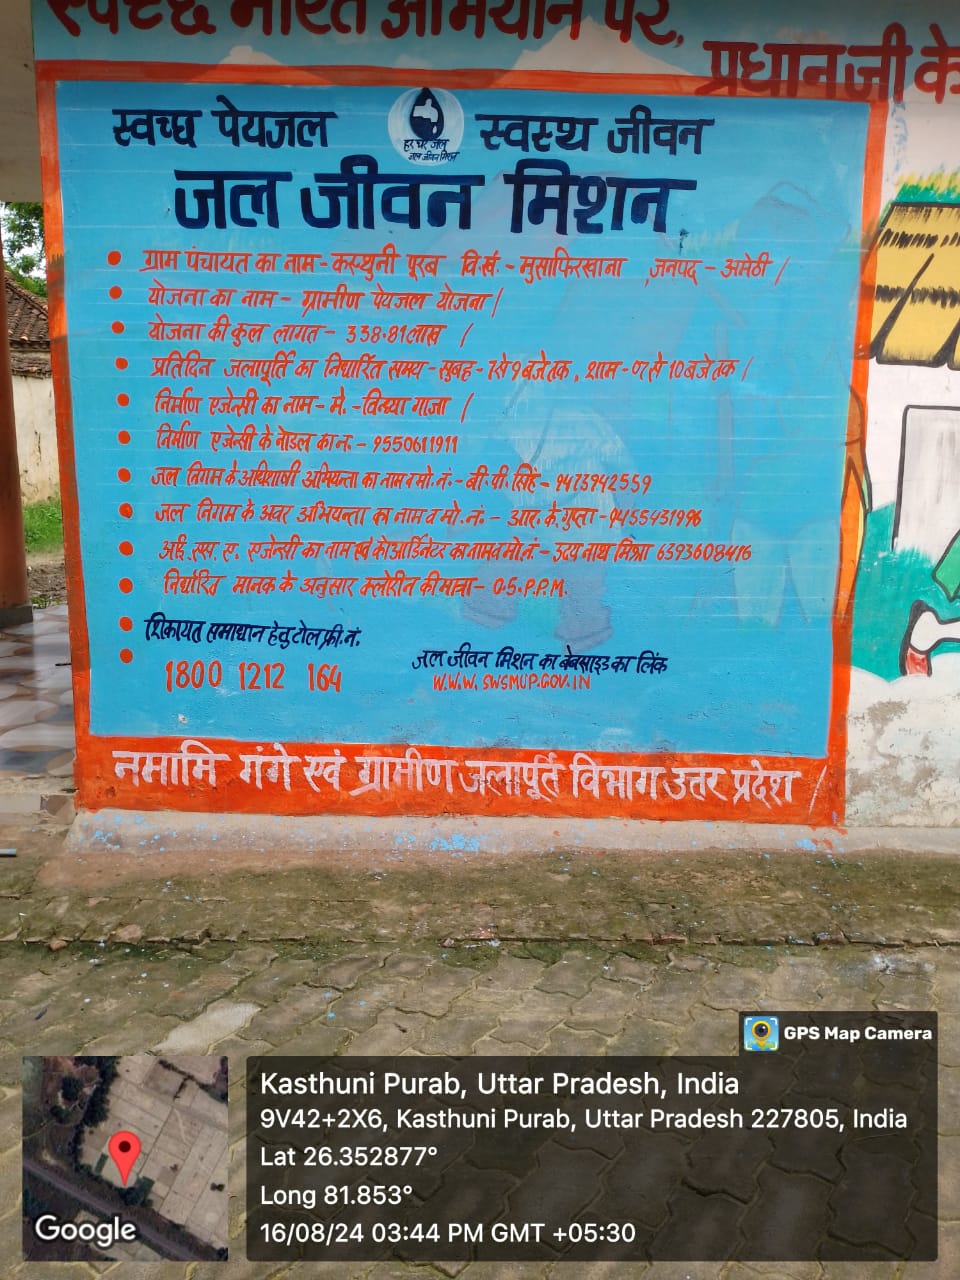 स्वच्छ भारत अभियान पर,
प्रधान जी के
स्वच्छ पेयजल
हर घर जल
जल जीवन मिशन
स्वस्थ जीवन
जल जीवन मिशन
• ग्राम पंचायत का नाम - कस्थुनी पूरब वि.खं. - मुसाफिरखाना जनपद - अमेठी /
• योजना का नाम - ग्रामीण पेयजल योजना /
• योजना की कुल लागत - 338.81 लाख /
• प्रतिदिन जलापूर्ति का निर्धारित समय - सुबह - 7 से 9 बजे तक, शाम - 07 से 10 बजे तक /
• निर्माण एजेन्सी का नाम - मे. - विन्ध्या गाजा /
• निर्माण एजेन्सी के नोडल का नं. - 9550611911
• जल निगम के अधिशाषी अभियन्ता का नाम व मो. नं. - बी.पी. सिंह - 9473942559
• जल निगम के अवर अभियन्ता का नाम व मो. नं. - आर. के. गुप्ता - 9455431996
• आई. एस. ए. एजेन्सी का नाम एवं कोआर्डिनेटर का नाम व मो. नं. - उदय नाथ मिश्रा 6393608416
• निर्धारित मानक के अनुसार क्लोरीन की मात्रा - 0.5. P.P.M.
• शिकायत समाधान हेतु टोल फ्री. नं.
• 1800 1212 164
जल जीवन मिशन का बेबसाइड का लिंक
W.W.W. SWSMUP.GOV.IN
नमामि गंगे एवं ग्रामीण जलापूर्ति विभाग उत्तर प्रदेश /
GPS Map Camera
Kasthuni Purab, Uttar Pradesh, India
9V42+2X6, Kasthuni Purab, Uttar Pradesh 227805, India
Lat 26.352877°
Long 81.853°
16/08/24 03:44 PM GMT +05:30
Google